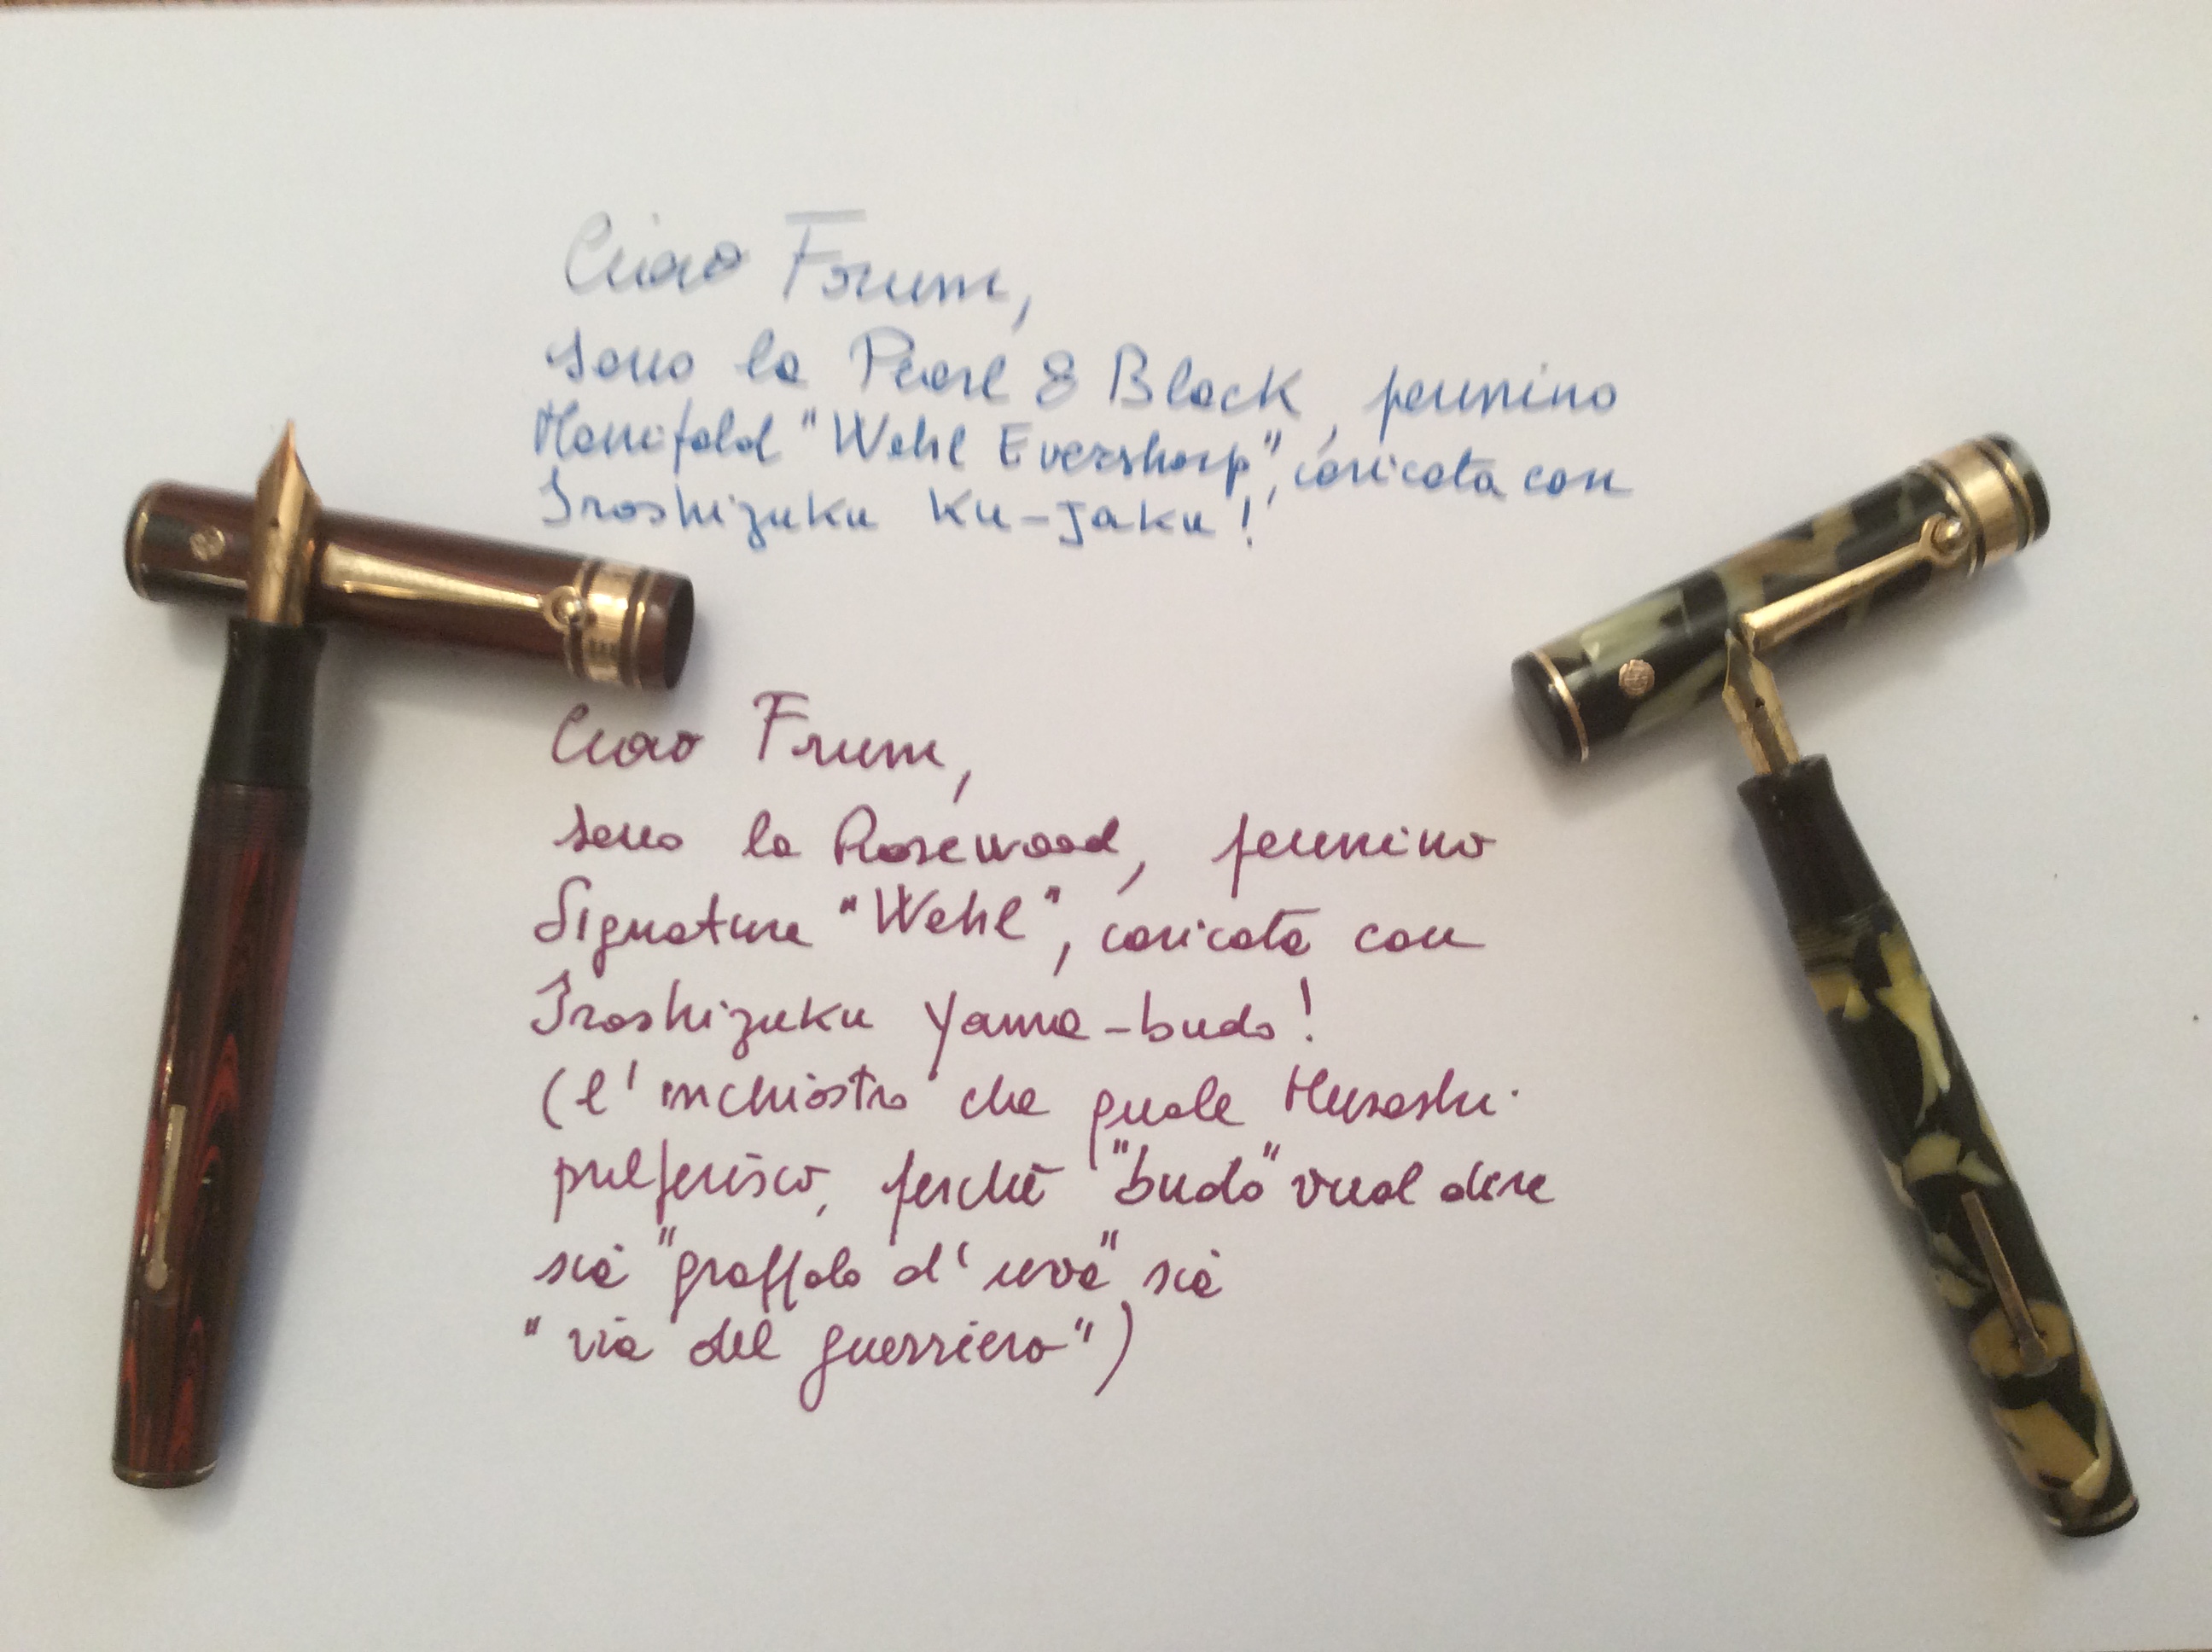 Ciao Forum,
sono la Pearl & Black, pennino
Manifold "Wahl Eversharp", caricata con
Iroshizuku Ku-Jaku!
Ciao Frum,
sono la Rosewood, pennino
Signature "Wahl", caricata con
Iroshizuku Yama-budo!
(l'inchiostro che quale Musashi
preferisco, perchè "budo" vuol dire
sia "grappolo d'uva" sia
"via del guerriero")